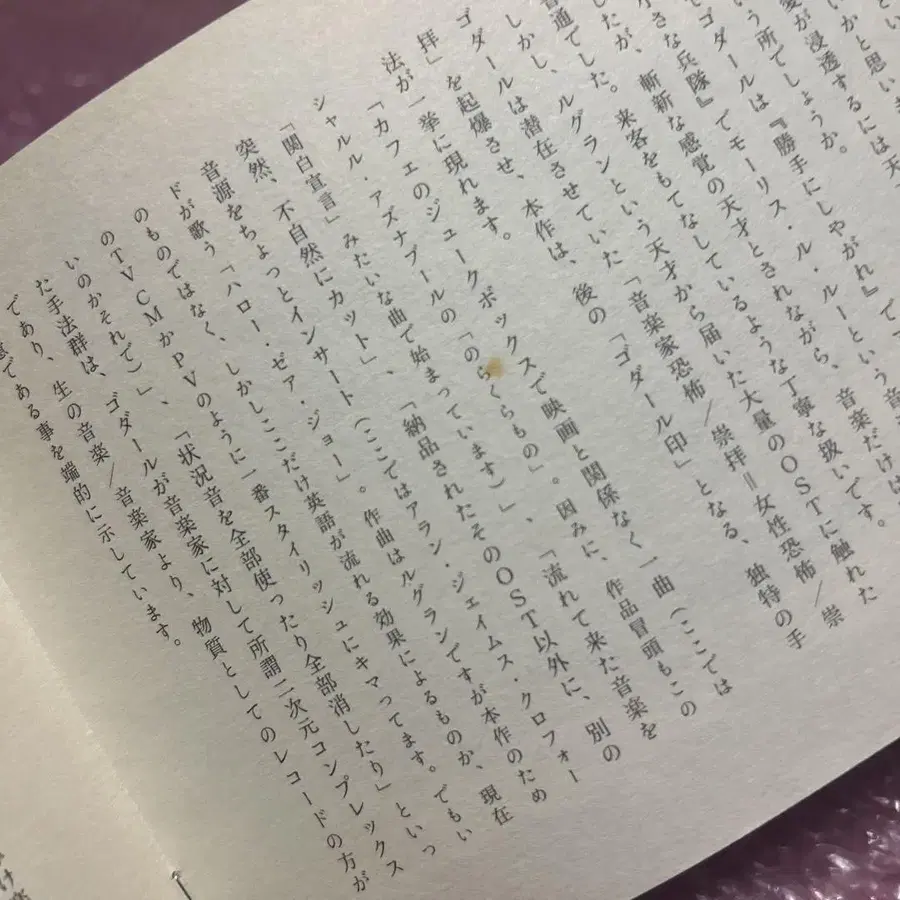 とい
いかと思いま
愛が浸透するには天
いう所でしょうか。
ゴダールは『勝手にしやがれ』で
小さな兵隊』でモーリス・ル・ルーという
したが、斬新な感覚の天才とされながら、音楽だけは
普通でした。来客をもてなしているような丁寧な扱いです。
しかし、ルグランという天才から届いた大量のOSTに触れた
ゴダールは潜在させていた「音楽家恐怖/崇拝=女性恐怖/崇
拝」を起爆させ、本作は、後の「ゴダール印」となる、独特の手
法が一挙に現れます。
「カフェのジュークボックスで映画と関係なく一曲(ここでは
シャルル・アズナブールの「のらくらもの」。因みに、作品冒頭もこの
「関白宣言」みたいな曲で始まっています)」、「流れて来た音楽を
突然、不自然にカット」、「納品されたそのOST以外に、別の
音源をちょっとインサート(ここではアラン・ジェイムス・クロフォー
ドが歌う「ハロー・ゼア・ジョー」。作曲はルグランですが本作のため
のものではなく、しかしここだけ英語が流れる効果によるものか、現在
のTVCMかPVのように一番スタイリッシュにキマってます。でもい
いのかそれで)」、「状況音を全部使ったり全部消したり」といっ
た手法群は、ゴダールが音楽家に対して所謂二次元コンプレックス
であり、生の音楽/音楽家より、物質としてのレコードの方が
意である事を端的に示しています。